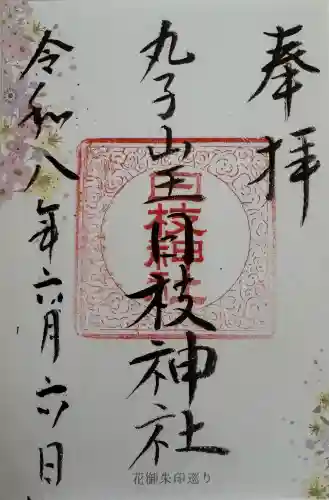 奉拝
丸子山王日枝神社
日枝神社
令和八年六月六日
花御朱印巡り